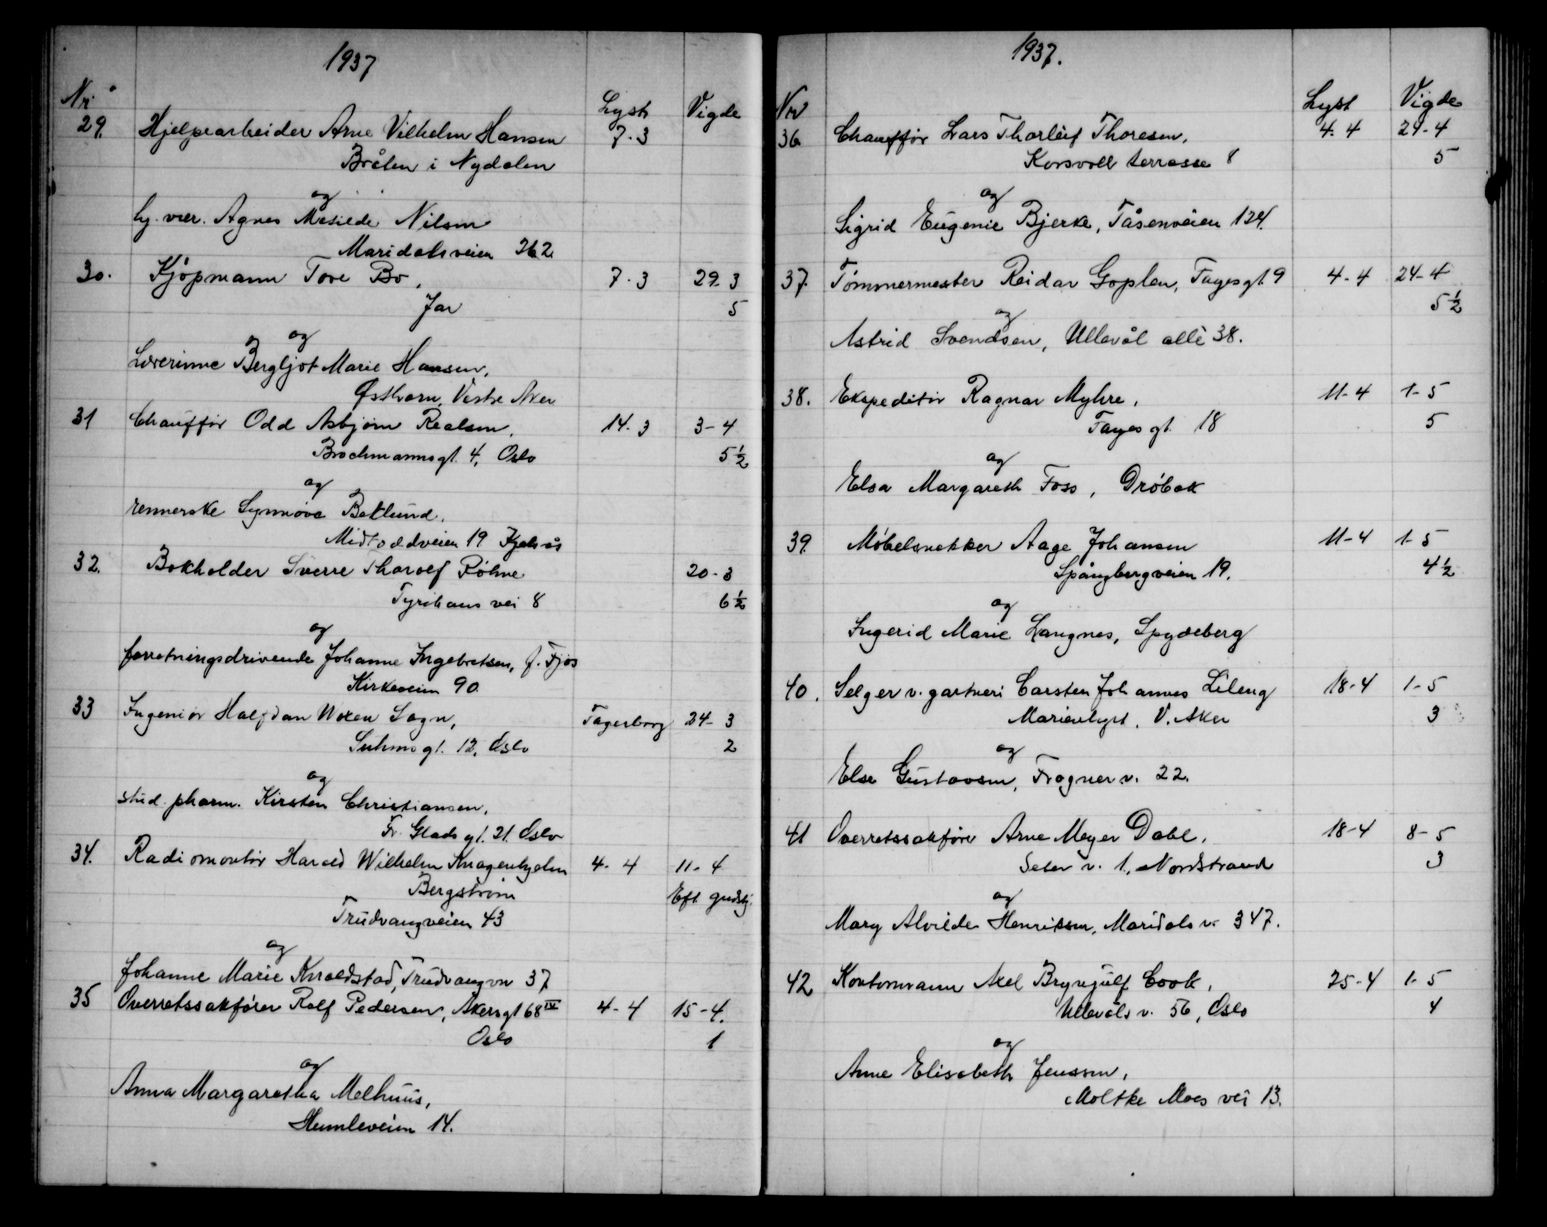 1937
Nr. Lyst Vigde
29. Hjelpearbeider Arne Vilhelm Hansen 7.3
Bråten i Nydalen
og
hj. vær. Agnes Nilsen
Maridalsveien 262
30. Kjøpmann Tore Bo, 7.3 29.3
Jar 5
og
Lærerinne Bergljot Marie Hansen,
Østhorn, Vestre Aker
31 Chauffør Odd Asbjørn Realsen, 14.3 3-4
Brochmannsgt. 4, Oslo 5½
og
rennerske Synnøve Beklund,
Midtoddveien 19 Kjelsås
32. Bokholder Sverre Tharolf Røhne 20-3
Tyrihans vei 8 6½
og
forretningsdrivende Johanne Ingebretsen, f. Fjøs
Kirkeveien 90
33 Ingeniør Halfdan Woxen Sogn, Fagerborg 24-3
Suhmsgt. 12, Oslo 2
og
stud. pharm. Kirsten Christiansen,
Fr. Glads gt. 21. Oslo
34. Radiomontør Harald Wilhelm Knagenhjelm 4-4 11-4
Bergstrøm Eft. gudstj.
Trudvangveien 43
og
Johanne Marie Knoldstad, Trudvangvn 37
35 Overretssakfører Rolf Pedersen, Akersgt 68 IV 4-4 15-4.
Oslo 1
og
Anna Margaretha Melhuus,
Humleveien 14.
1937.
Nr Lyst Vigde
36 Chauffør Lars Thorleif Thoresen, 4.4 24-4
Korsvoll terrasse 8 5
og
Sigrid Eugenie Bjerke, Tåsenveien 124.
37. Tømmermester Reidar Goplen, Fayesgt. 9 4-4 24-4
og 5½
Astrid Svendsen, Ullevål allè 38.
38. Ekspeditør Ragnar Myhre, 11-4 1-5
Fayes gt. 18 5
og
Elsa Margareth Foss, Drøbak
39. Møbelsnekker Aage Johansen 11-4 1-5
Spångbergveien 19. 4½
og
Ingerid Marie Langnes, Spydeberg
40. Selger v. gartneri Carsten Johannes Lileng 18-4 1-5
Marienlyst, V. Aker 3
og
Else Gustavsen, Frogner v. 22.
41 Overretssakfører Arne Meyer Dahl, 18-4 8-5
Seter v. 1, Nordstrand 3
og
Mary Alvilde Henriksen, Maridals v. 347.
42 Kontormann Axel Brynjulf Cook, 25-4 1-5
Ullevåls v. 56, Oslo 4
og
Anne Elisabeth Jenssen,
Moltke Moes vei 13.